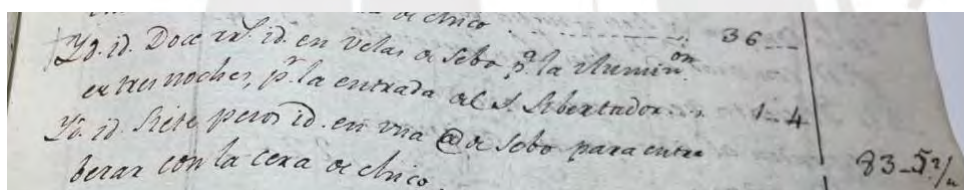 de chico . 36 ---
Yd. id. Doce rrs. id. en velas de sebo, pa. la ilumin.on
en tres noches, pr. la entrada del S. Libertador . . 1 - 4
Yd. id. Siete pesos id. en una @ de sebo para entre
berar con la cera de chico.
83 - 5